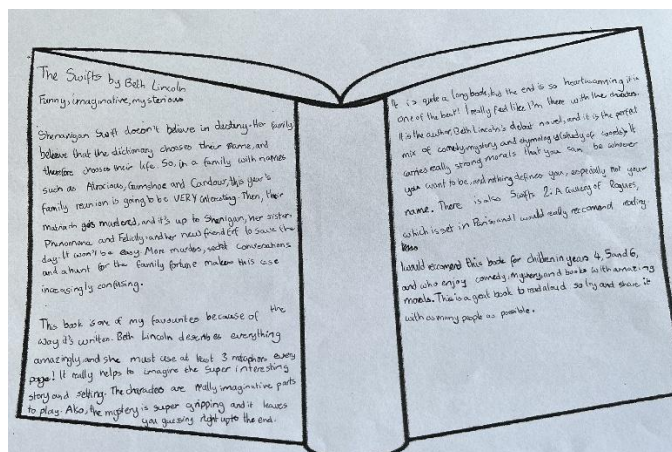 The Swifts by Beth Lincoln
Funny, imaginative, mysterious
Shenanigan Swift doesn't believe in destiny. Her family
believe that the dictionary chooses their name, and
therefore chooses their life. So, in a family with names
such as Atrocious, Gumshoe and Candour, this year's
family reunion is going to be VERY interesting. Then, their
matriarch gets murdered, and it's up to Shenigan, her sisters
Phenomena and Felicity and her new friend Erf to save the
day. It won't be easy. More murders, secret conversations
and a hunt for the family fortune makes this case
increasingly confusing.
This book is one of my favourites because of the
way it's written. Beth Lincoln describes everything
amazingly and she must use at least 3 metaphors every
page! It really helps to imagine the super interesting
story and setting. The characters are really imaginative parts
to play. Also, the mystery is super gripping and it leaves
you guessing right up to the end.
It is quite a long book, but the end is so heartwarming it is
one of the best! I really feel like I'm there with the characters.
It is the author, Beth Lincoln's debut novel, and it is the perfect
mix of comedy, mystery and etymology (study of words). It
carries really strong morals that you can be whoever
you want to be, and nothing defines you, especially not your
name. There is also Swifts 2: A Gallery of Rogues,
which is set in Paris and I would really recomend reading
I would recomend this book for children in years 4, 5 and 6,
and who enjoy comedy, mystery and books with amazing
morals. This is a great book to read aloud so try and share it
with as many people as possible.